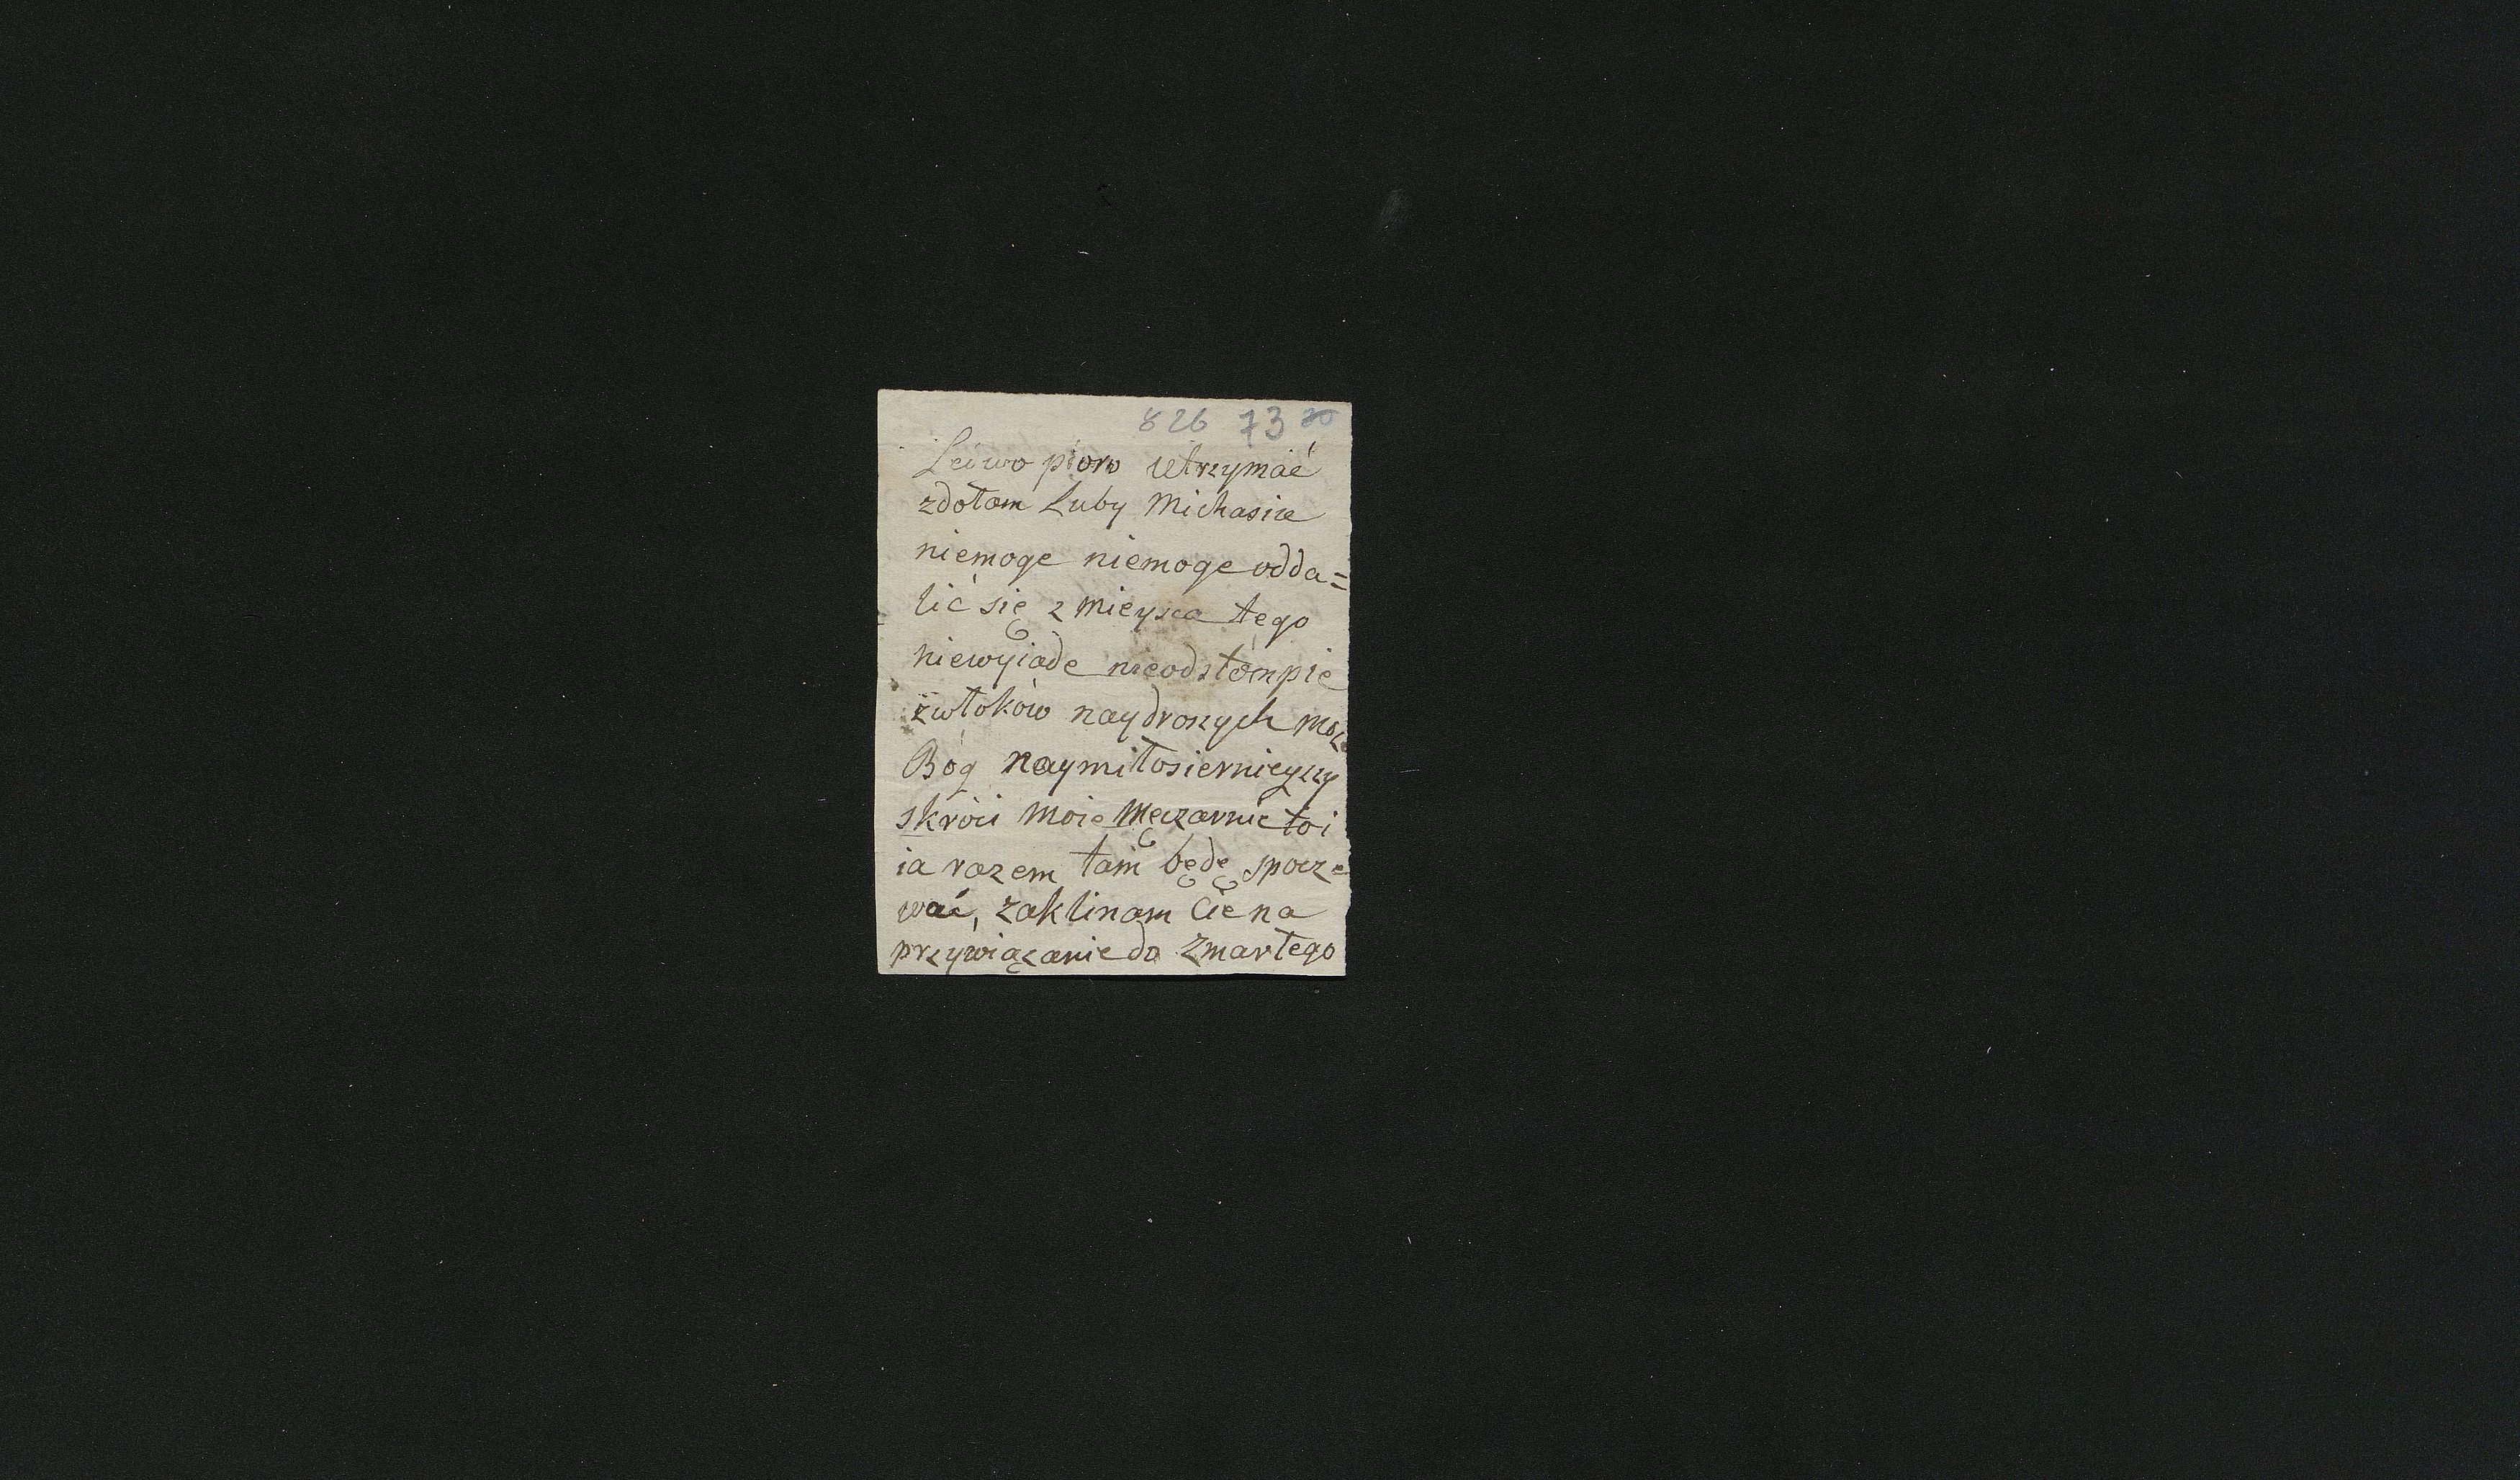 826 73 20
Lediwo pioro utrzymać
zdołam Luby Michasiu
niemoge niemoge odda=
lić się z mieysca tego
niewyiade nieodstompie
zwłoków naydroszych
Bóg naymiłosiernieyszy
skróci moie męczarnie to i
ia razem tam będę spocze
wać, zaklinam Cie na
przywiązanie do zmarłego